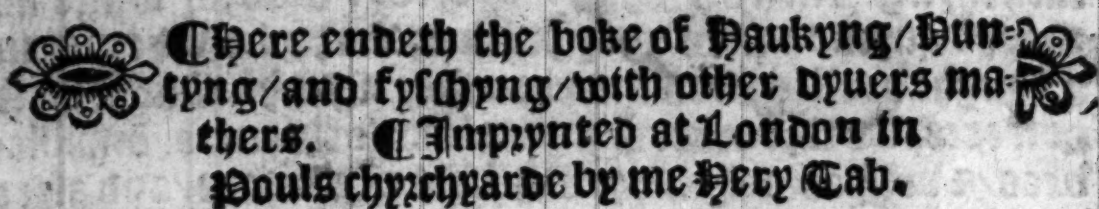 ¶Here endeth the boke of Haukyng/Hun⸗
tyng/and fyſſhyng/with other dyuers ma⸗
thers. ¶Imprynted at London in
Pouls chyrchyarde by me Hery Tab.